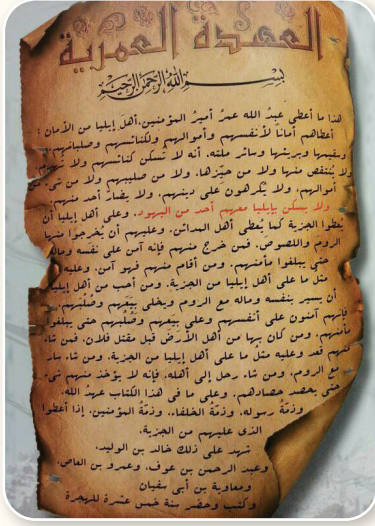 العهدة العمرية
بسم الله الرحمن الرحيم
هذا ما أعطى عبدُ الله عمرُ أميرُ المؤمنين، أهلَ إيليا من الأمان :
أعطاهم أماناً لأنفسهم وأموالهم ولكنائسهم وصلبانهم،
وسقيمها وبريئها وسائر ملتها، أنه لا تُسكن كنائسهم ولا تُهدم،
ولا يُنتقص منها ولا من حيّزها، ولا من صليبهم ولا من شيء من
أموالهم، ولا يُكرهون على دينهم، ولا يضارّ أحد منهم،
ولا يسكن بإيليا معهم أحد من اليهود. وعلى أهل إيليا أن
يُعطوا الجزية كما يُعطي أهل المدائن. وعليهم أن يُخرجوا منها
الروم واللصوص. فمن خرج منهم فإنه آمن على نفسه وماله
حتى يبلغوا مأمنهم. ومن أقام منهم فهو آمن. وعليه
مثل ما على أهل إيليا من الجزية. ومن أحب من أهل إيليا
أن يسير بنفسه وماله مع الروم ويخلي بيَعهم وصُلُبهم،
فإنهم آمنون على أنفسهم وعلى بيَعهم وصُلُبهم حتى يبلغوا
مأمنهم. ومن كان بها من أهل الأرض قبل مقتل فلان، فمن شاء
منهم قعد وعليه مثل ما على أهل إيليا من الجزية. ومن شاء سار
مع الروم. ومن شاء رجل إلى أهله، فإنه لا يؤخذ منهم شيء
حتى يحصد حصادهم. وعلى ما في هذا الكتاب عهدُ الله،
وذمّةُ رسوله، وذمّة الخلفاء، وذمّة المؤمنين، إذا أعطوا
الذي عليهم من الجزية.
شهد على ذلك خالد بن الوليد،
وعبد الرحمن بن عوف. وعمرو بن العاص.
ومعاوية بن أبي سفيان
وكتب وحضر سنة خمس عشرة للهجرة